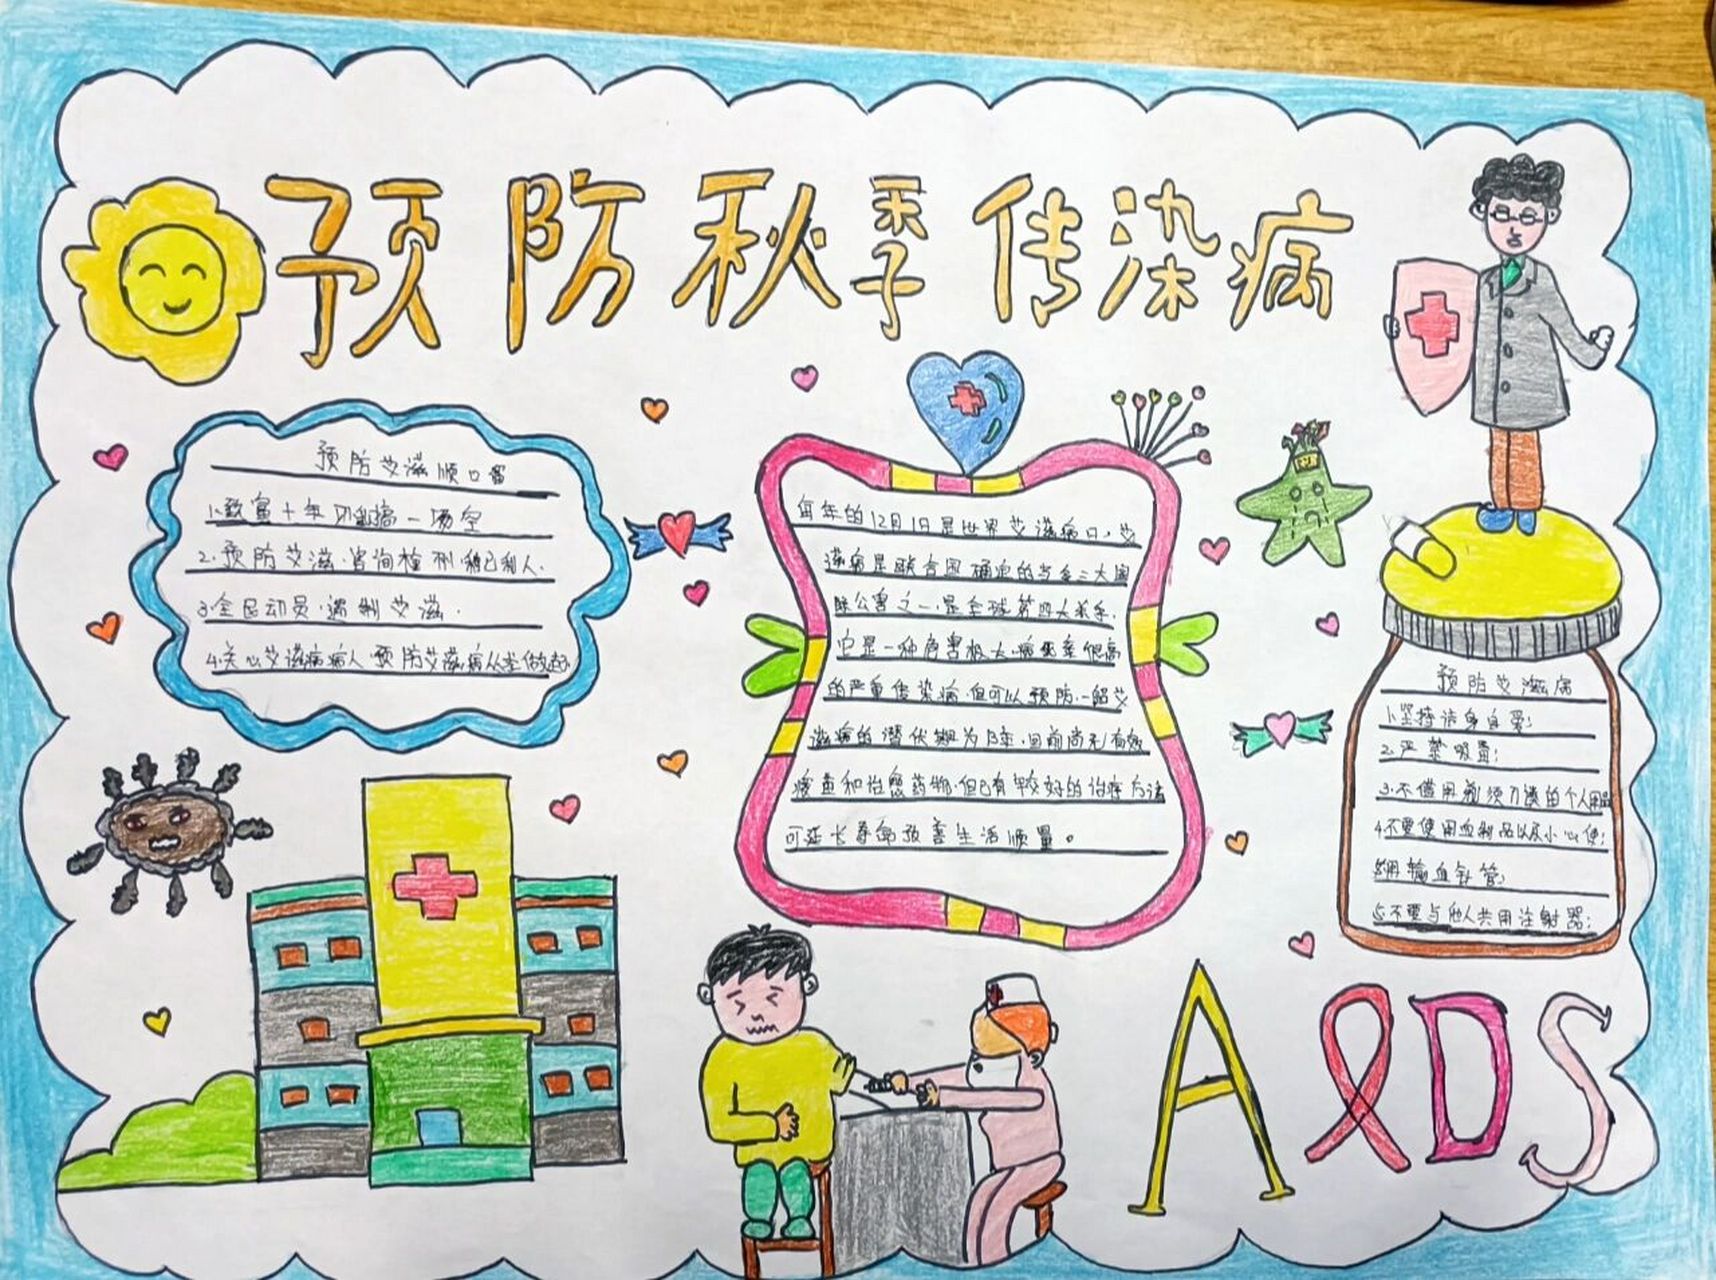 预防秋季传染病
预防艾滋顺口溜
1.致富十年功 一场空
2.预防艾滋.咨询检测.利己利人.
3.全民动员.遏制艾滋.
4.关心艾滋病病人.预防艾滋病从坐做起
每年的12月1日是世界艾滋病日,艾
滋病是联合国确定的当今三大国
际公害之一.是全球第四大杀手.
它是一种危害极大.病死率很高
的严重传染病.但可以预防.一留艾
滋病的潜伏期为 年.目前尚无有效
疫苗和治愈药物.但已有较好的治疗方法
可延长寿命改善生活顺量。
预防艾滋病
1.坚持洁身自爱;
2.严禁吸毒;
3.不借用剃须刀类的个人用品
4.不要使用血制品以及小心使;
用输血针管;
5.不要与他人共用注射器;
AIDS